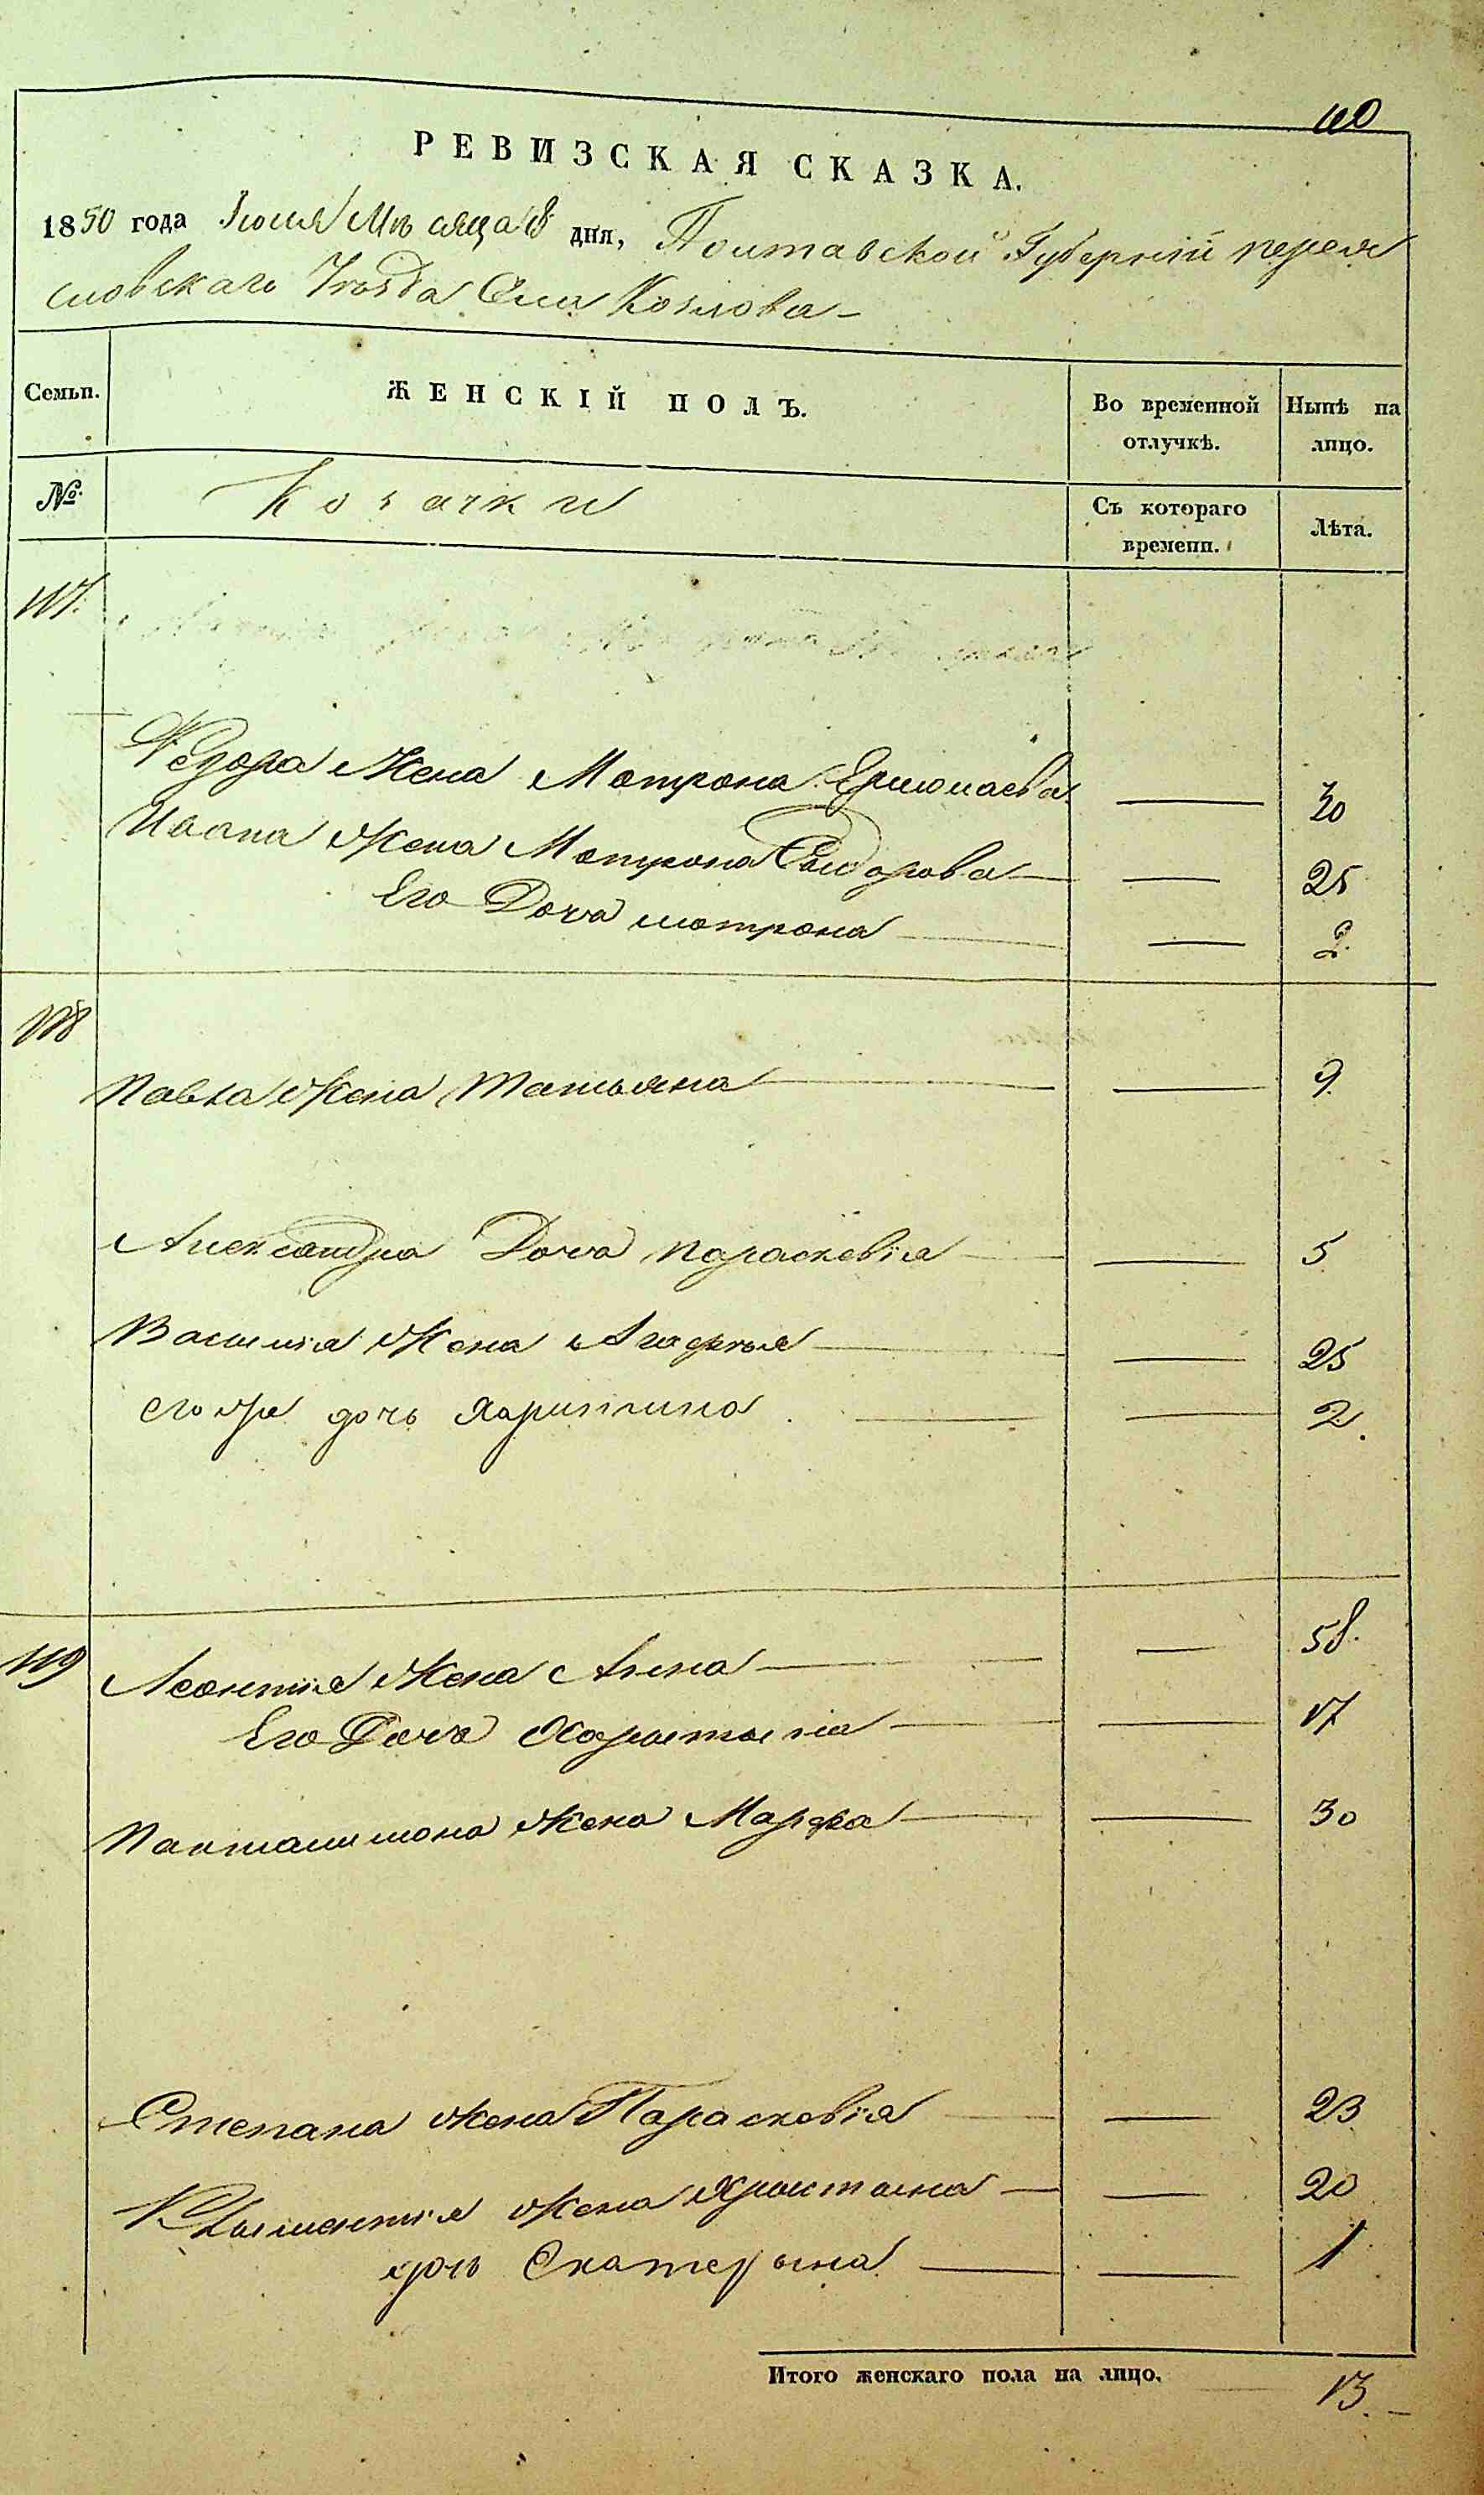 110
РЕВИЗСКАЯ СКАЗКА.
1850 года Июля Мѣсяца 18 дня, Полтавской Губерніи переяс
словскаго Уѣзда Села Козлова
Семьи. ЖЕНСКІЙ ПОЛЪ. Во временной отлучкѣ. Нынѣ на лицо.
№ Козачки Съ котораго времени. Лѣта.
117.
Федора Жена Мотрона 30
Ивана Жена Мотрона Сыдорова 25
Его Дочь мотрона 2.
118
Павла Жена Татьяна 9
Александра Дочь параскевія 5
Василія Жена Агафья 25
его же дочь Харитина 2.
119 Леонтія Жена Анна 58.
Его Дочь Харытына 17
Панталимона Жена Марфа 30
Степана жена Параскевія 23
Клыментія Жена Христына 20
дочь Екатерына 1
Итого женскаго пола на лицо. 13.